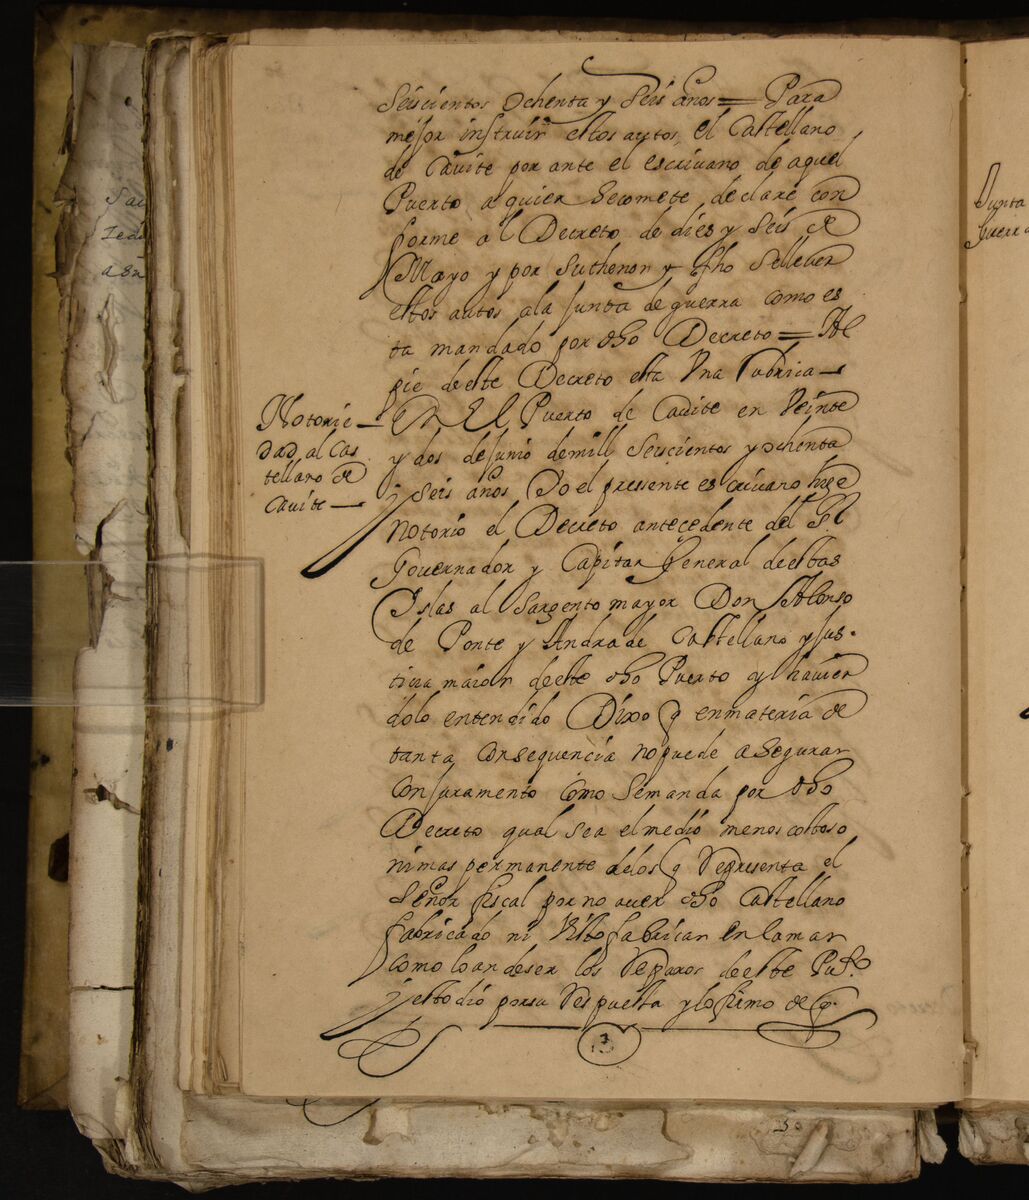 Seiscientos ochenta y seis años = Para
mejor instruir estos autos, el Castellano
de Cavite por ante el escrivano de aquel
Puerto a quien secomete declare con
forme al Decreto de dies y seis de
Mayo y por suthenor y fho selleven
estos autos ala junta de guerra como es
ta mandado por dho Decreto = Al
pie deeste Decreto esta Una rubrica —
Notorie
dad al Cas
tellano de
Cavite —
En El Puerto de Cavite en Veinte
y dos dejunio demill Seiscientos y ochenta
y seis años Yo el pressente escrivano hize
Notorio el Decreto antecedente del Sr
Governador y Capitan General deestas
Islas al Sargento mayor Don Alonso
de Ponte y Andrade Castellano y Jus-
ticia maior deeste dho Puerto y havien
dolo entendido Dixo q enmateria de
tanta consequencia nopuede asegurar
conjuramento como semanda por dho
Decreto qual sea elmedio menos costoso
nimas permanente delos q Representa el
Señor fiscal por no aver dho Castellano
fabricado ni Visto fabricar en lamar
como loan deser los Reparos deeste Pu.to
y esto dio porsu Respuesta y lo firmo de q.
Junta
guerra